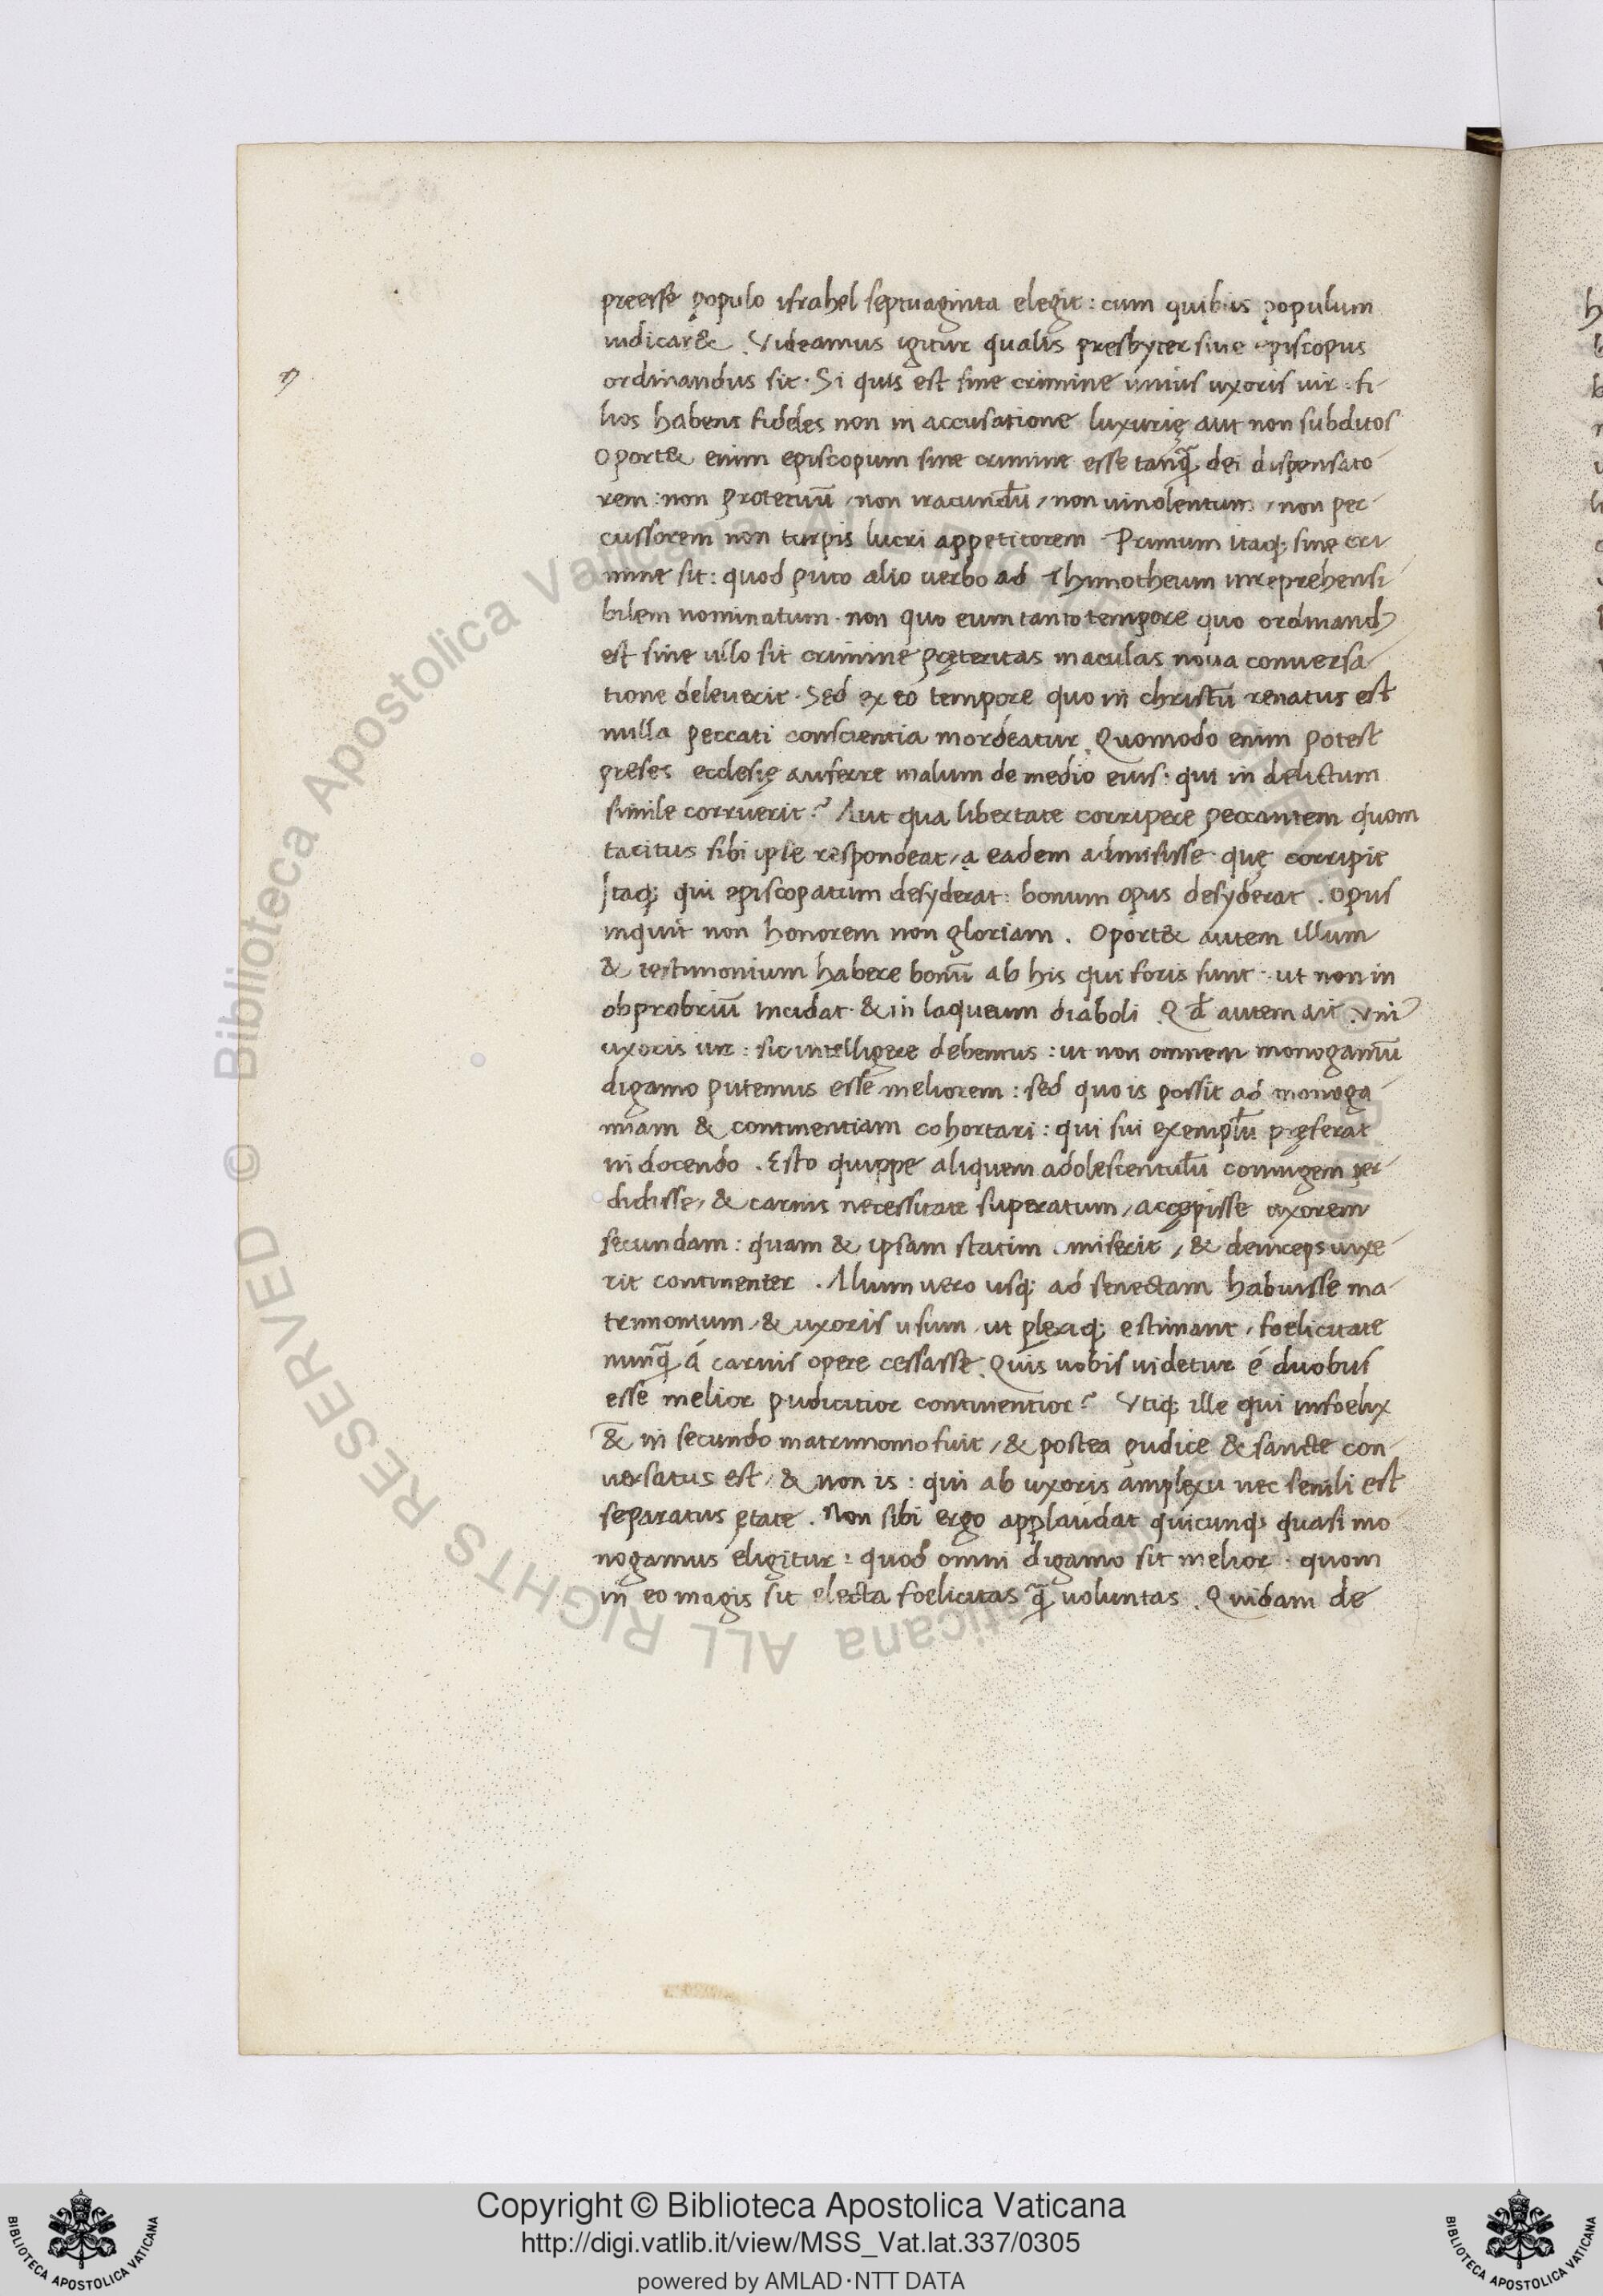 preesse populo israhel septuaginta elegit : cum quibus populum
iudicar& . Videamus igitur qualis presbyter siue episcopus
ordinandus sit · Si quis est sine crimine unius uxoris uir · fi-
lios habens fideles non in accusatione luxurię aut non subditos
Oport& enim episcopum sine crimine esse tanq̄ dei dispensato
rem : non proteruū / non iracundū / non uinolentum / non per-
cussorem non turpis lucri appetitorem · Primum itaq; sine cri
mine sit : quod puto alio uerbo ad Thimotheum irreprehensi
bilem nominatum · non quo eum tanto tempore quo ordinand9
est sine ullo sit crimine pręteritas maculas noua conuersa-
tione deleuerit · Sed ex eo tempore quo in christū renatus est
nulla peccati conscientia mordeatur . Quomodo enim potest
preses ecclesię auferre malum de medio eius : qui in delictum
simile corruerit ? Aut qua libertate corripere peccantem quom
tacitus sibi ipse respondeat / ea eadem admisisse quę corripit
Itaq; qui episcopatum desyderat : bonum opus desyderat . opus
inquit non honorem non gloriam . Oport& autem illum
& testimonium habere bonū ab his qui foris sunt · ut non in
obprobriū incidat · & in laqueum diaboli . Qd̄ autem ait . uni9
uxoris uir : sic intelligere debemus : ut non omnem monogamū
digamo putemus esse meliorem : sed quo is possit ad monoga-
miam & continentiam cohortari : qui sui exemplū pręferat
in docendo . Esto quippe aliquem adolescentulū coniugem per-
didisse / & carnis necessitate superatum / accepisse uxorem
secundam : quam & ipsam statim amiserit / & deinceps uixe-
rit continenter . Alium uero usq; ad senectam habuisse ma-
trimonium / & uxoris usum / ut pleriq; estimant / foelicitate
nunq̄ á carnis opere cessasse . Quis uobis uidetur é duobus
esse melior pudicitior continentior ? Vtiq; ille qui infoelix
& in secundo matrimonio fuit / & postea pudice & sancte con-
uersatus est / & non is : qui ab uxoris amplexu nec senili est
separatus ętate . Non sibi ergo applaudat quicunq; quasi mo
nogamus eligitur : quod omni digamo sit melior · quom
in eo magis sit electa foelicitas q̄ uoluntas . Quidam de
© Biblioteca Apostolica Vaticana ALL RIGHTS RESERVED
Copyright © Biblioteca Apostolica Vaticana
http://digi.vatlib.it/view/MSS_Vat.lat.337/0305
powered by AMLAD·NTT DATA
BIBLIOTECA APOSTOLICA VATICANA
BIBLIOTECA APOSTOLICA VATICANA